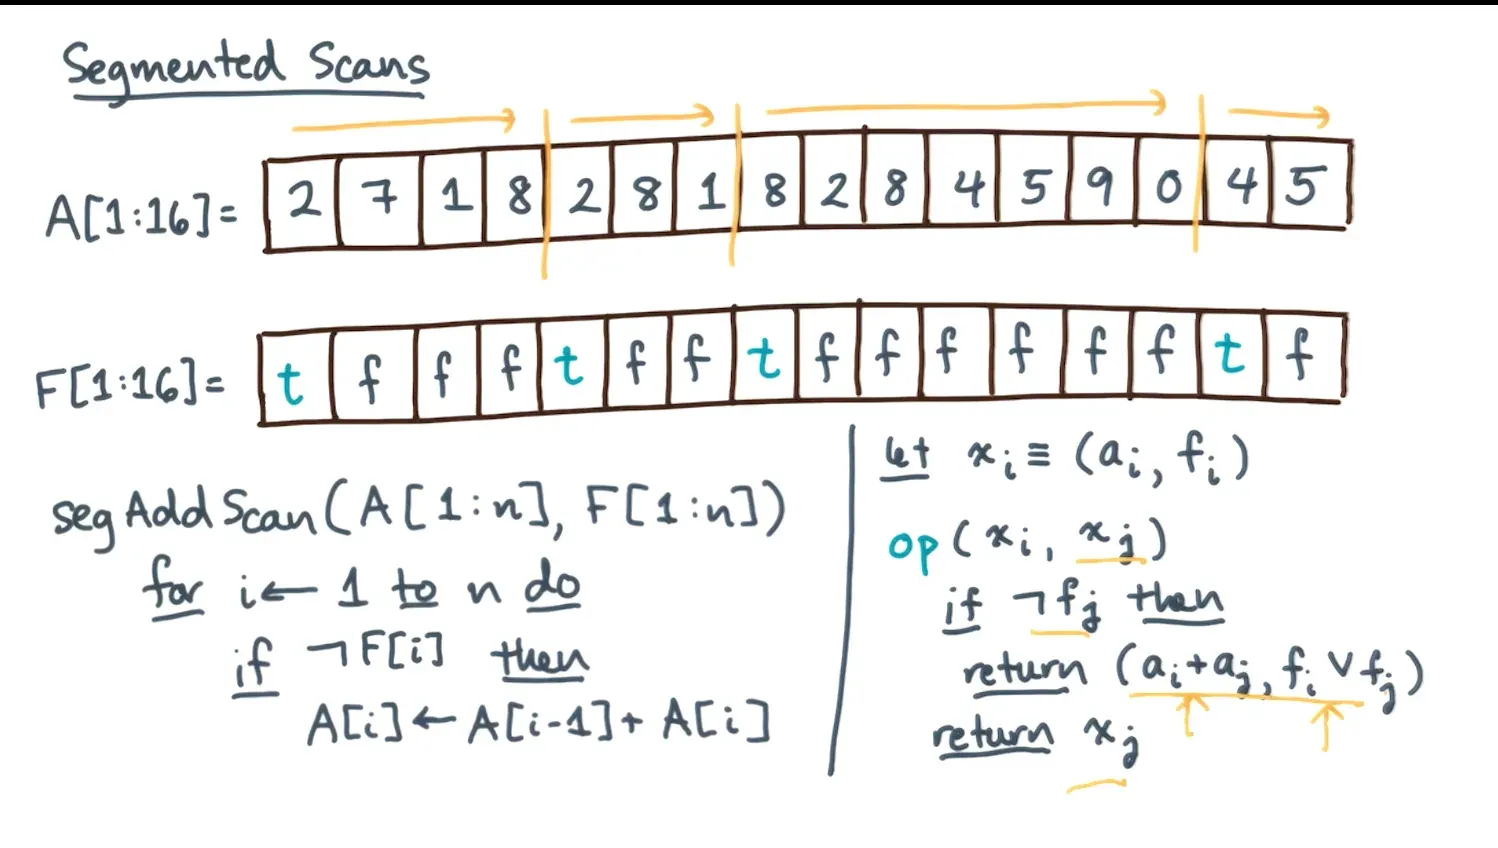 Segmented Scans
A[1:16]= 2 7 1 8 2 8 1 8 2 8 4 5 9 0 4 5
F[1:16]= t f f f t f f t f f f f f f t f
segAddScan(A[1:n], F[1:n])
for i← 1 to n do
if ¬F[i] then
A[i]← A[i-1]+ A[i]
let xᵢ ≡ (aᵢ, fᵢ)
op(xᵢ, xⱼ)
if ¬fⱼ then
return (aᵢ+aⱼ, fᵢ ∨ fⱼ)
return xⱼ